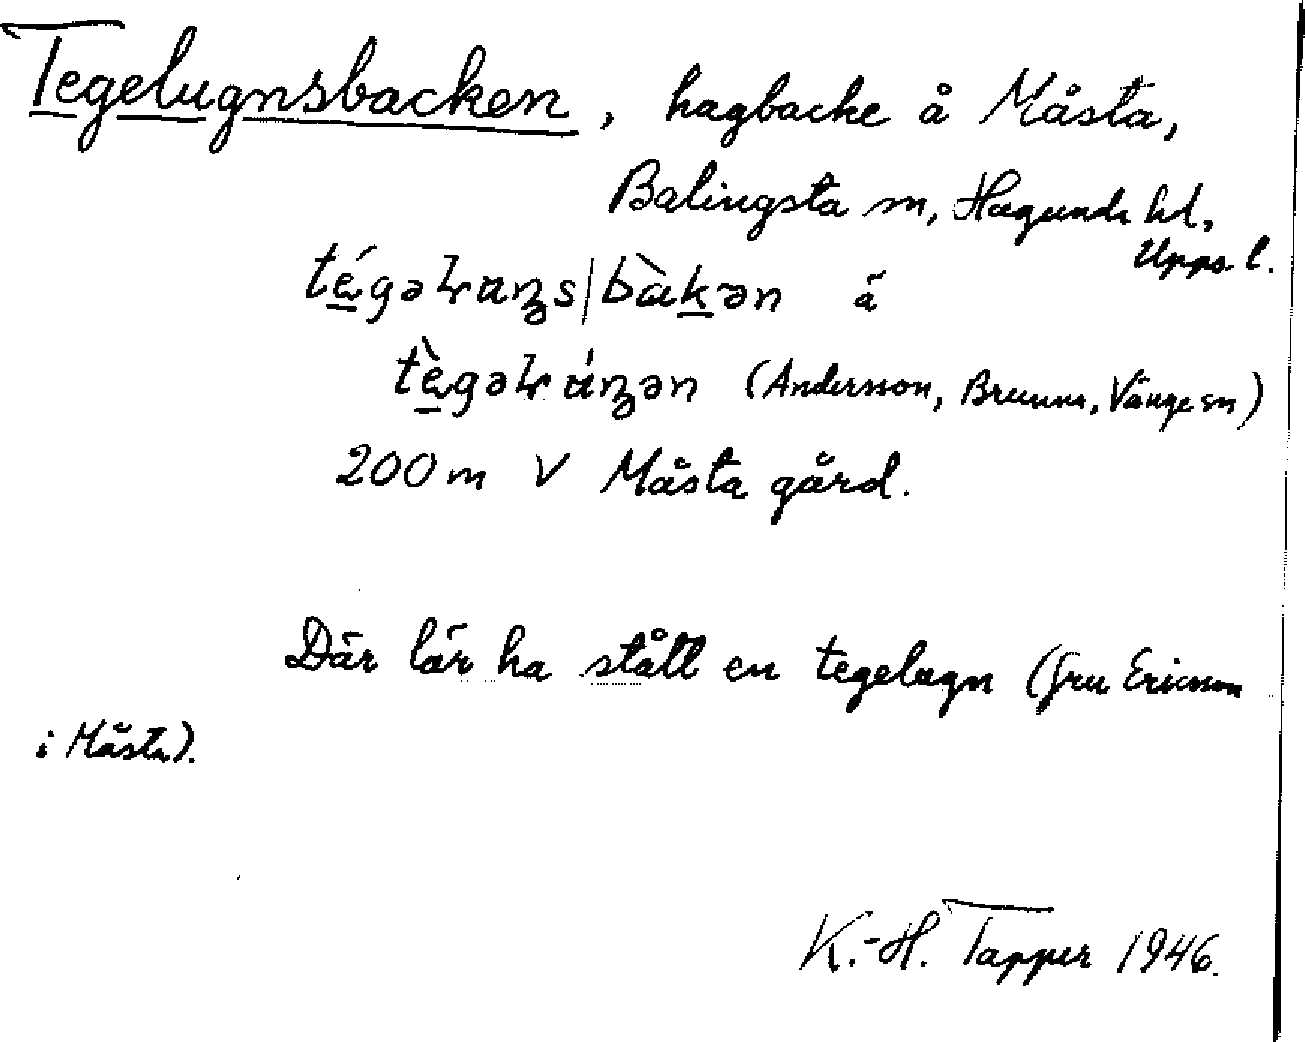 Tegelugnsbacken, hagbacke å Måsta,
Balingsta sn, Hagunda hd,
Upps. l.
té̱gəɫɑŋs|bàḵən å
tè̱gəɫɑ́ŋən (Andersson, Brunna, Vänge sn)
200 m V Måsta gård.
Där lär ha stått en tegelugn (fru Ericson
i Måsta).
K.-H. Tapper 1946.